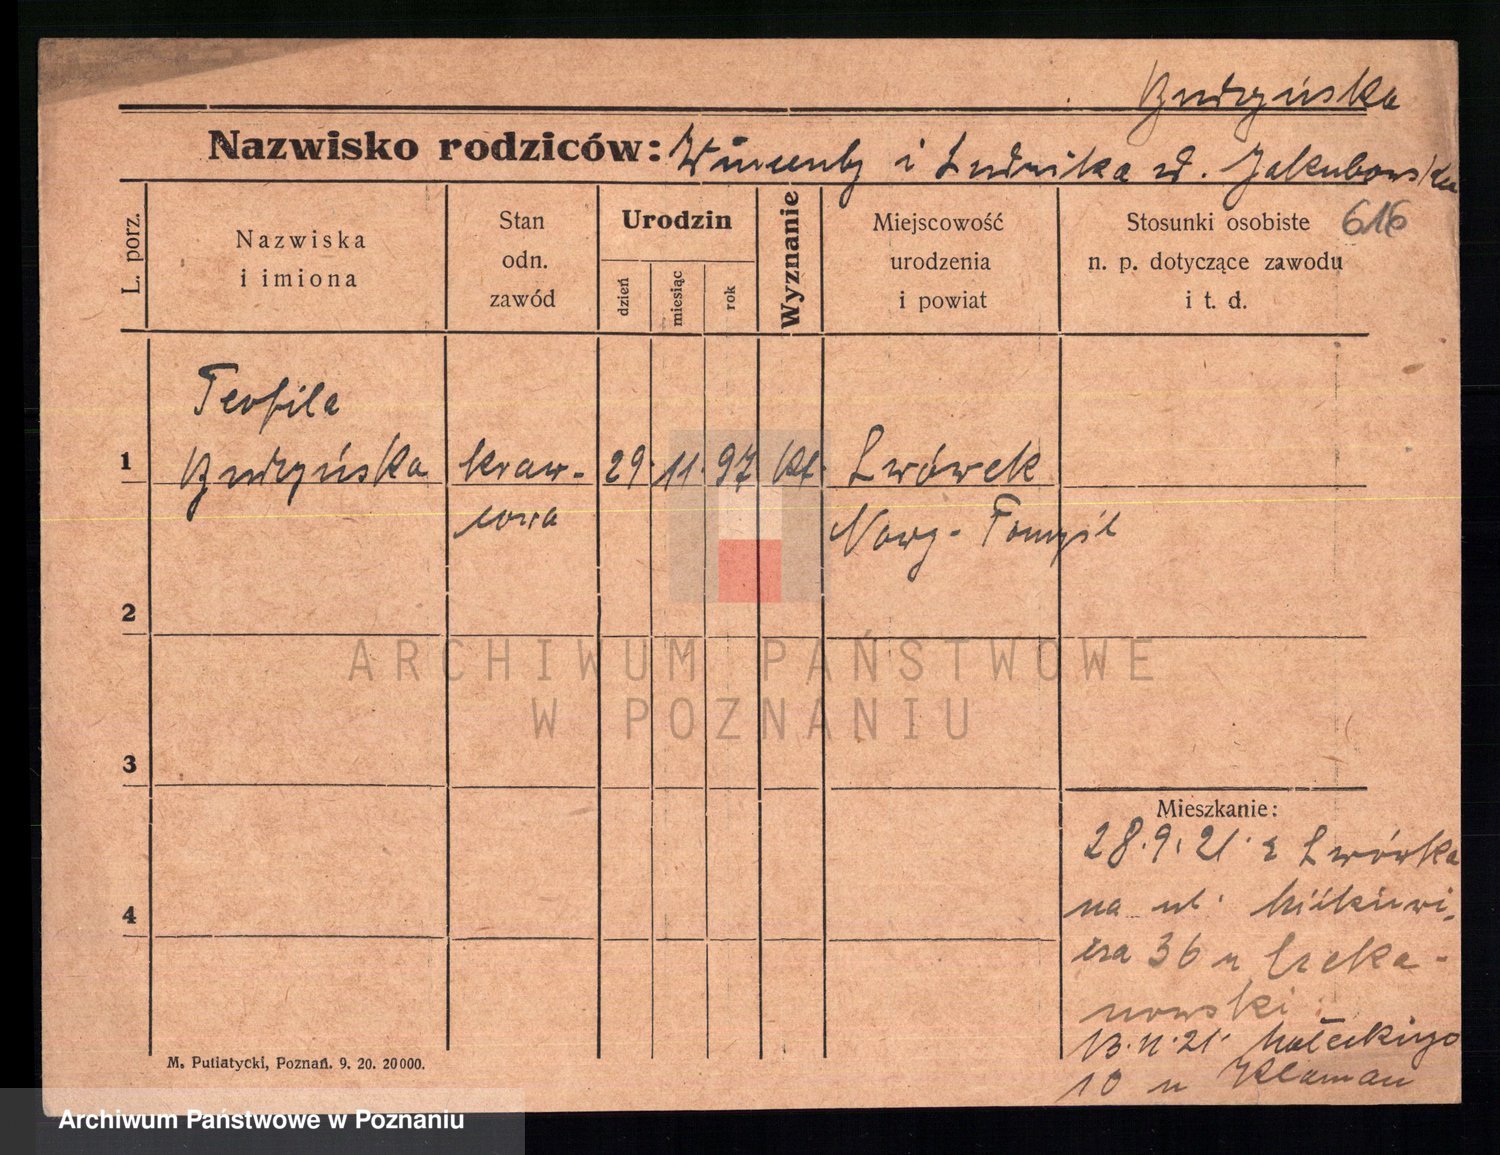 Budzyńska
Nazwisko rodziców: Wincenty i Ludwika z d. Jakubowska
L. porz.
Nazwiska
i imiona
Stan
odn.
zawód
Urodzin
dzień
miesiąc
rok
Wyznanie
Miejscowość
urodzenia
i powiat
Stosunki osobiste
n. p. dotyczące zawodu
i t. d.
616
Teofila
1 Budzyńska kraw- 29. 11. 97 kt. Lwówek
cowa Nowy-Tomyśl
2
3
4
Mieszkanie:
28.9.21. z Lwówka
na ul. Mickiewi-
cza 36 u Czeka-
nowski
13.11.21. Małeckiego
10 u Klaman
M. Putiatycki, Poznań. 9. 20. 20000.
ARCHIWUM PAŃSTWOWE
W POZNANIU
Archiwum Państwowe w Poznaniu